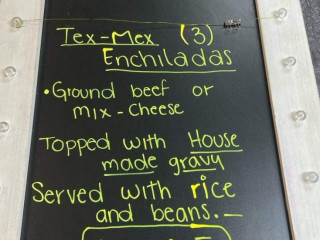 Tex-Mex (3)
Enchiladas
• Ground beef or
mix-cheese
Topped with House
made gravy
Served with rice
and beans.